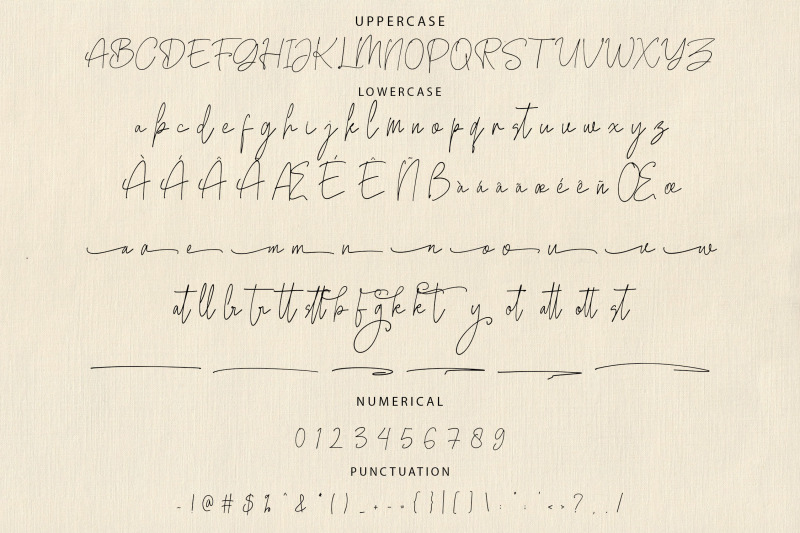 UPPERCASE
ABCDEFGHIJKLMNOPQRSTUVWXYZ
LOWERCASE
a b c d e f g h i j k l m n o p q r s t u v w x y z
À Á Â Ã Æ É Ê Ñ B à á â ã æ é ê ñ Œ œ
a a e m m n n o o u v w
at ll lr tr tt stt b f g k k t y ot att ott st
NUMERICAL
0 1 2 3 4 5 6 7 8 9
PUNCTUATION
- ! @ # $ % ^ & * ( ) _ + - = { } | [ ] \ : " ; ' < > ? , . /